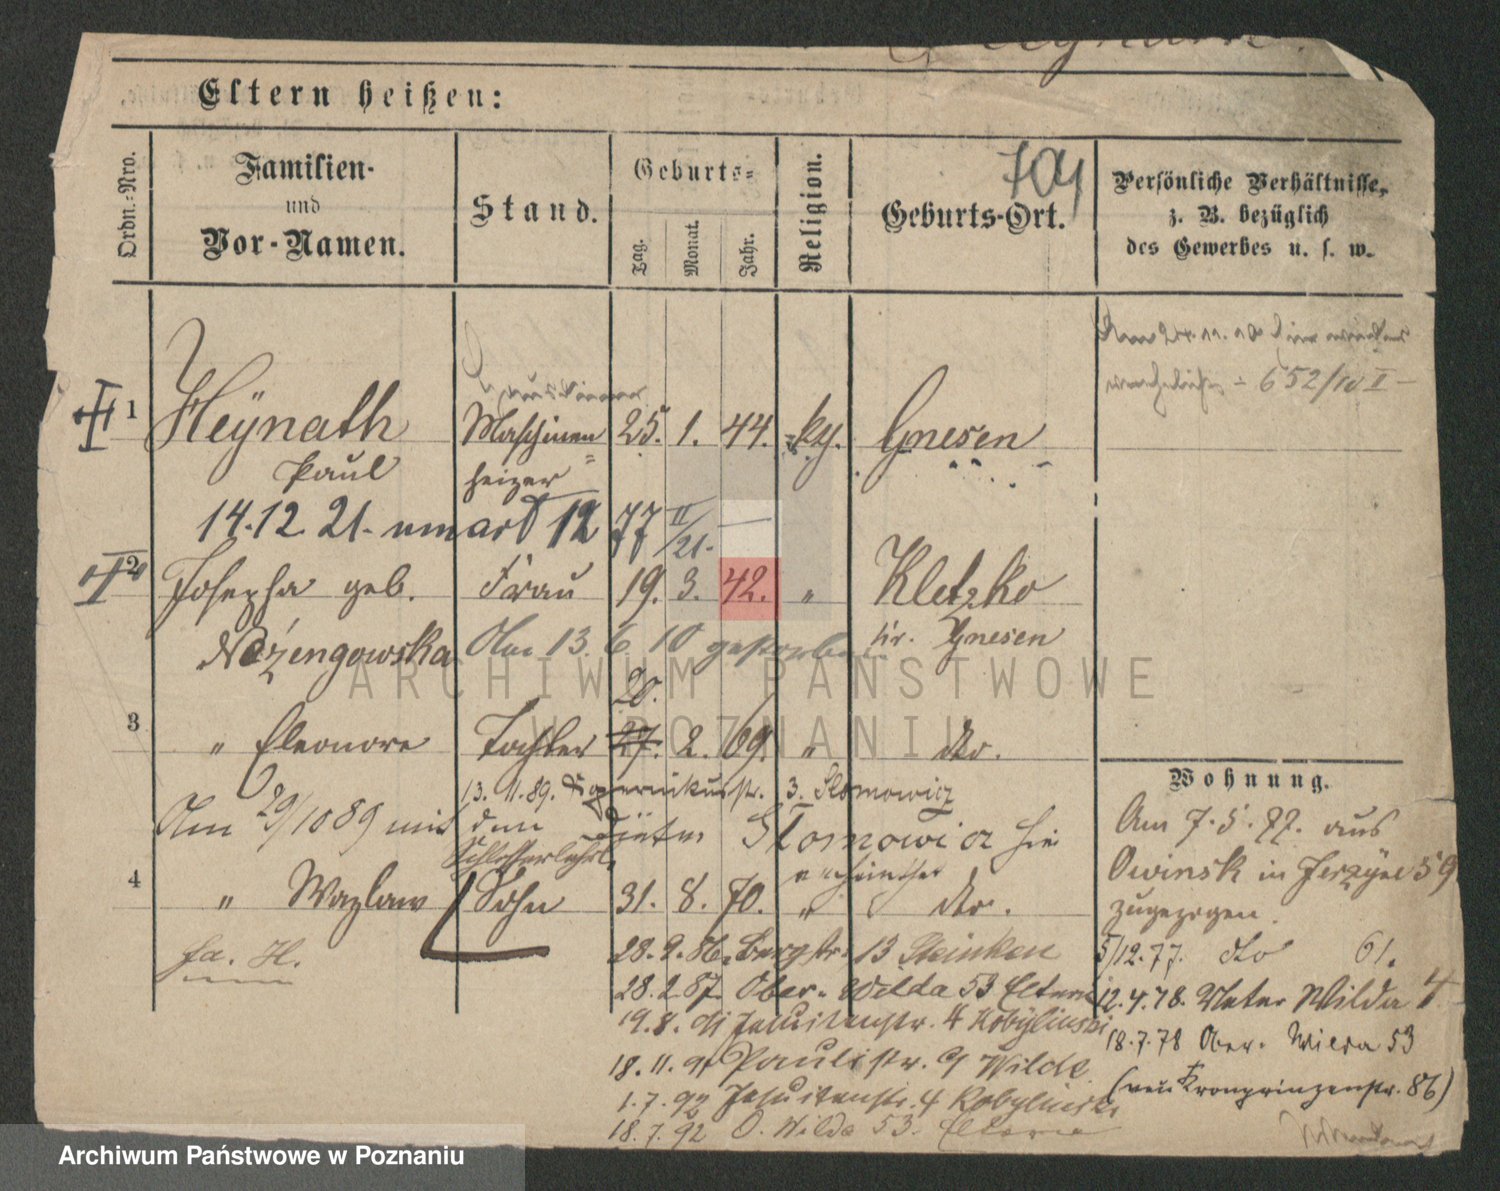 Eltern heißen:
Ordn.-Nro.
Familien-
und
Vor-Namen.
Stand.
Geburts-
Tag.
Monat.
Jahr.
Religion.
Geburts-Ort.
Persönliche Verhältnisse,
z. B. bezüglich
des Gewerbes u. s. w.
Am 24.11.10
652/10 II
1 Heÿnath Maschinen 25. 1. 44. kg. Gnesen
Paul heizer
14.12 21.
2 Josepha geb. Frau 19. 3. 42. " Kletzko
Am 13. 6 10 gestorben kr. Gnesen
20.
3 " Eleonore Tochter 27. 2. 69. " do.
13. 11. 89. Kopernikusstr. 3. Slomowicz
Am 29/10 89 mit dem Slomowicz hier
Schlosserlehrl.
4 " Wazlaw Sohn 31. 8. 70. " do.
fa. H.
28. 9. 86. Bergstr. 13 Steinken
28. 2. 87. Ober-Wilda 53 Eltern
19. 8. 91 Jesuitenstr. 4 Kobylinski
18. 11. 91 Paulistr. 9 Wilde
1. 7. 92 Jesuitenstr. 4 Kobylinski
18. 7. 92 O. Wilda 53. Eltern
Wohnung.
Am 7. 5. 77. aus
Owinsk in Jerzyce 59
zugezogen.
5/12. 77. do 61.
12. 4. 78. Unter Wilda 4
18. 7. 78 Ober-Wilda 53
(neu Kronprinzenstr. 86)
ARCHIWUM PAŃSTWOWE
W POZNANIU
Archiwum Państwowe w Poznaniu